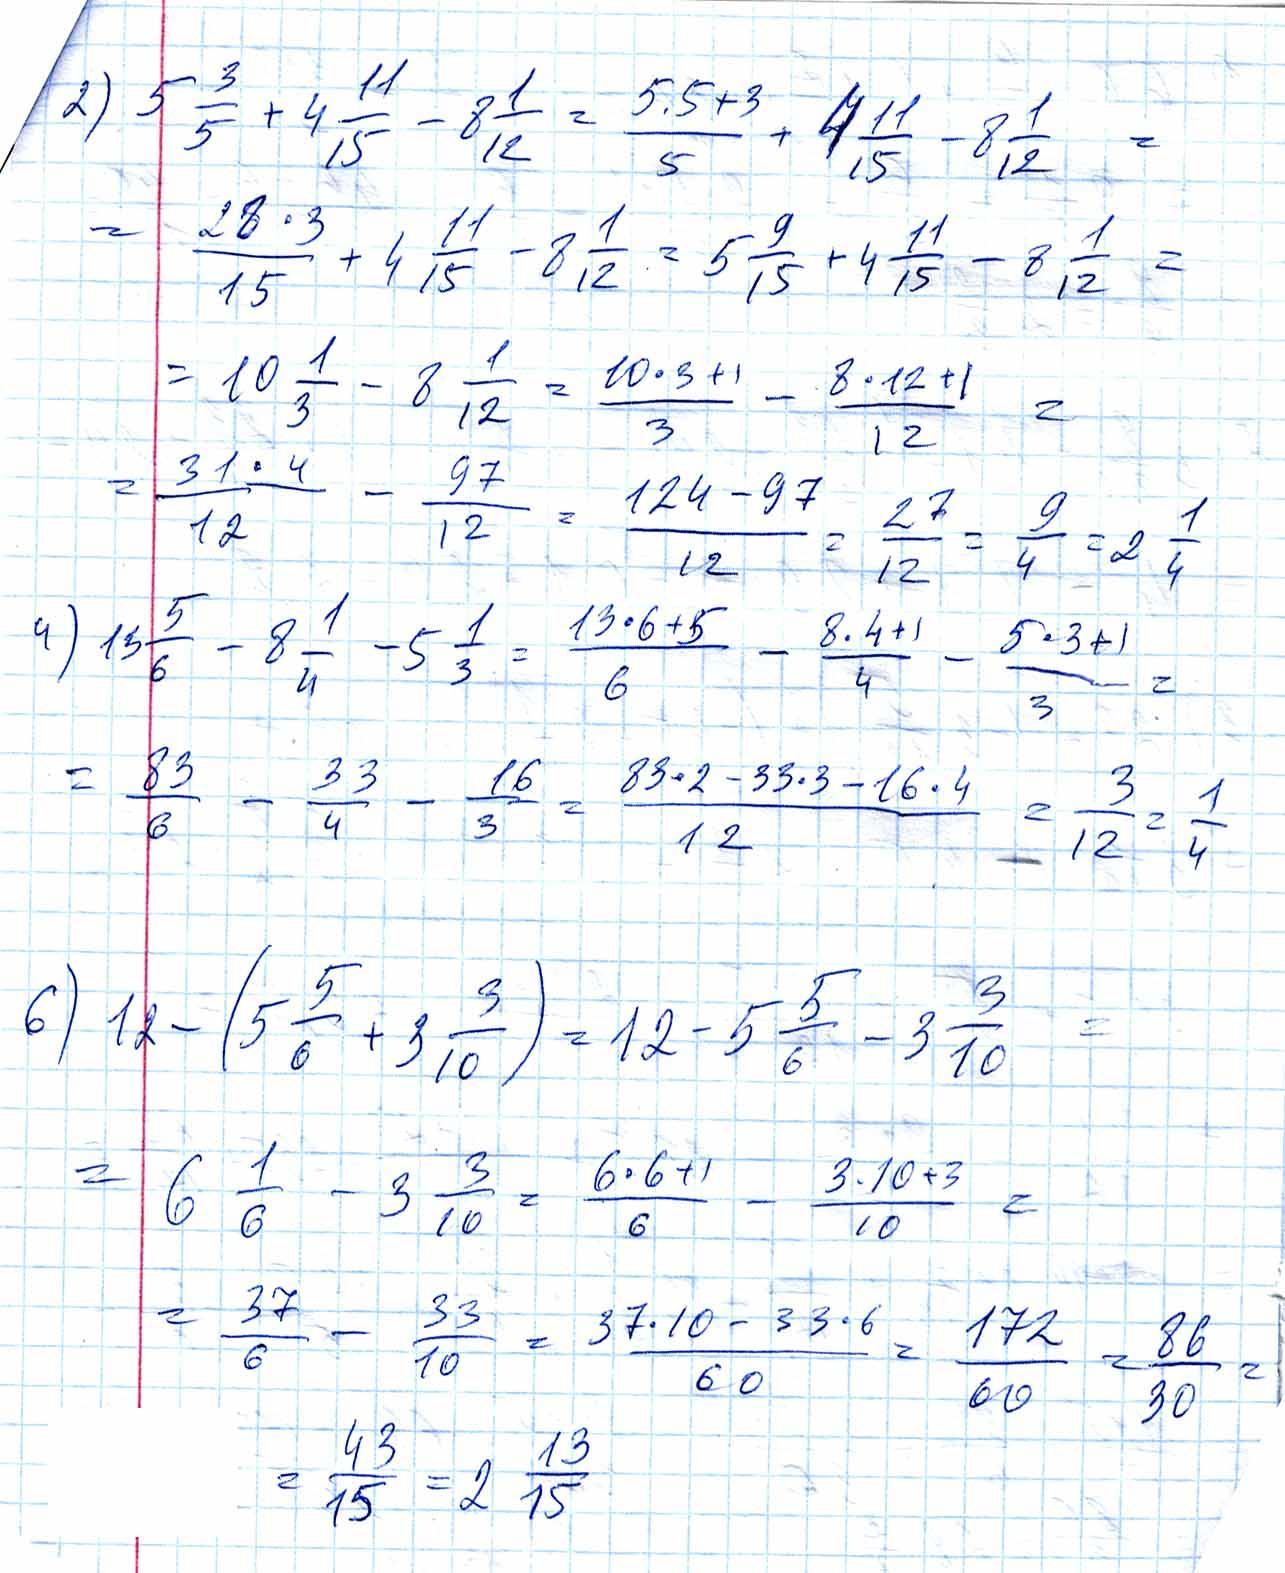 2) 5 3/5 + 4 11/15 - 8 1/12 = (5·5+3)/5 + 4 11/15 - 8 1/12 =
= (28·3)/15 + 4 11/15 - 8 1/12 = 5 9/15 + 4 11/15 - 8 1/12 =
= 10 1/3 - 8 1/12 = (10·3+1)/3 - (8·12+1)/12 =
= (31·4)/12 - 97/12 = (124-97)/12 = 27/12 = 9/4 = 2 1/4
4) 13 5/6 - 8 1/4 - 5 1/3 = (13·6+5)/6 - (8·4+1)/4 - (5·3+1)/3 =
= 83/6 - 33/4 - 16/3 = (83·2-33·3-16·4)/12 = 3/12 = 1/4
6) 12 - (5 5/6 + 3 3/10) = 12 - 5 5/6 - 3 3/10 =
= 6 1/6 - 3 3/10 = (6·6+1)/6 - (3·10+3)/10 =
= 37/6 - 33/10 = (37·10-33·6)/60 = 172/60 = 86/30 =
= 43/15 = 2 13/15